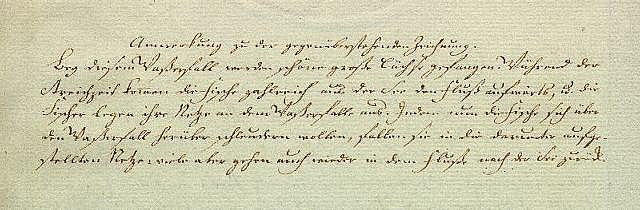 Anmerkung zu der gegenüberstehenden Zeichnung.
Bey diesem Waßerfall werden schöne große Lächse gefangen. Während der
Streichzeit kommen die Fische zahlreich aus der See den Fluß aufwärts, u. die
Fischer legen ihre Netze an dem Waßerfalle aus. Indem nun die Fische sich über
den Waßerfall herüber schleudern wollen, fallen sie in die darunter aufge-
stellten Netze viele aber gehen auch wieder in dem Fluße nach der See zurük.